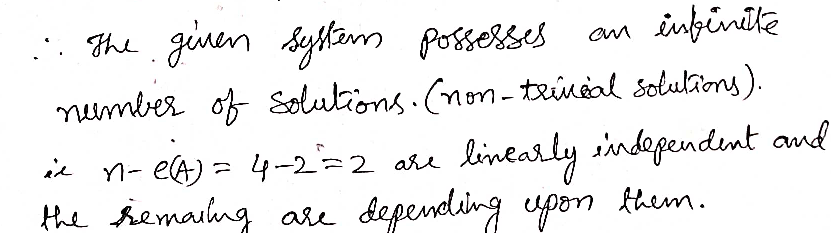 ∴ The given system possesses an infinite
number of solutions. (non-trivial solutions).
ie n-ρ(A) = 4-2=2 are linearly independent and
the remaing are depending upon them.